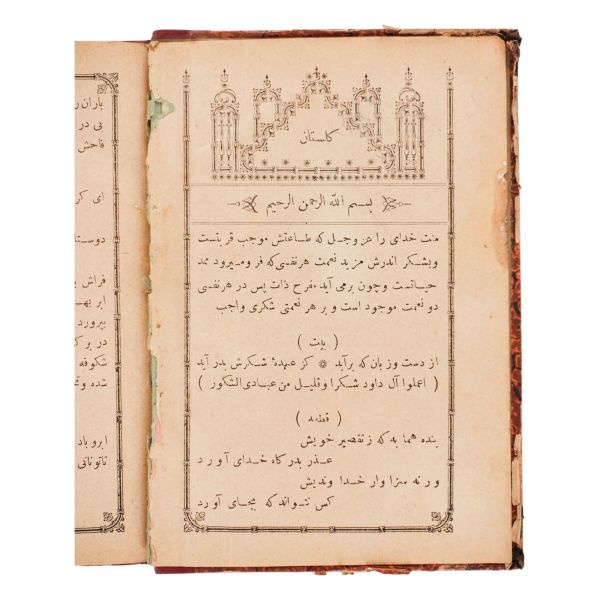 كلستان
بسم الله الرحمن الرحيم
منت خدای را عز وجل که طاعتش موجب قربتست
وبشکر اندرش مزید نعمت هرنفسی که فرومیرود ممد
حیاتست وچون برمی آید مفرح ذات پس در هرنفسی
دو نعمت موجود است و بر هر نعمتی شکری واجب
( بیت )
از دست وزبان که برآید * کز عهدهٔ شکرش بدر آید
( اعملوا آل داود شکرا وقلیل من عبادی الشکور )
( قطعه )
بنده هما به که زتقصیر خویش
عذر بدرکاه خدای آورد
ورنه سزاوار خداوندیش
کس نتواند که بجای آورد
باران
بی در
فاحش
ای کر
دوستا
فراش
ابر بها
بپرورد
در برک
شکوفه
شده وتم
ابروباد
تاتونانی